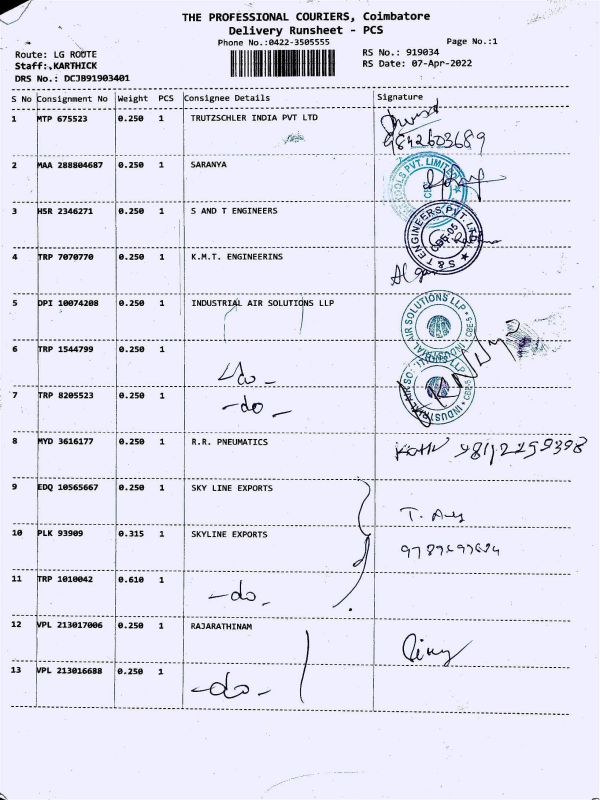 THE PROFESSIONAL COURIERS, Coimbatore
Delivery Runsheet - PCS
Phone No.:0422-3505555
Page No.:1
Route: LG ROUTE
RS No.: 919034
Staff:.KARTHICK
RS Date: 07-Apr-2022
DRS No.: DCJB91903401
S No Consignment No Weight PCS Consignee Details Signature
1 MTP 675523 0.250 1 TRUTZSCHLER INDIA PVT LTD
9842603689
2 MAA 288804687 0.250 1 SARANYA
TOOLS PVT. LIMITED
3 HSR 2346271 0.250 1 S AND T ENGINEERS
S & T ENGINEERS PVT. LTD.
CBE-05
4 TRP 7070770 0.250 1 K.M.T. ENGINEERINS
5 DPI 10074208 0.250 1 INDUSTRIAL AIR SOLUTIONS LLP
INDUSTRIAL AIR SOLUTIONS LLP * CBE-5 *
6 TRP 1544799 0.250 1 -do-
INDUSTRIAL AIR SOLUTIONS LLP * CBE-5 *
7 TRP 8205523 0.250 1 -do-
8 MYD 3616177 0.250 1 R.R. PNEUMATICS
9 EDQ 10565667 0.250 1 SKY LINE EXPORTS
10 PLK 93909 0.315 1 SKYLINE EXPORTS
11 TRP 1010042 0.610 1 -do-
12 VPL 213017006 0.250 1 RAJARATHINAM
13 VPL 213016688 0.250 1 -do-